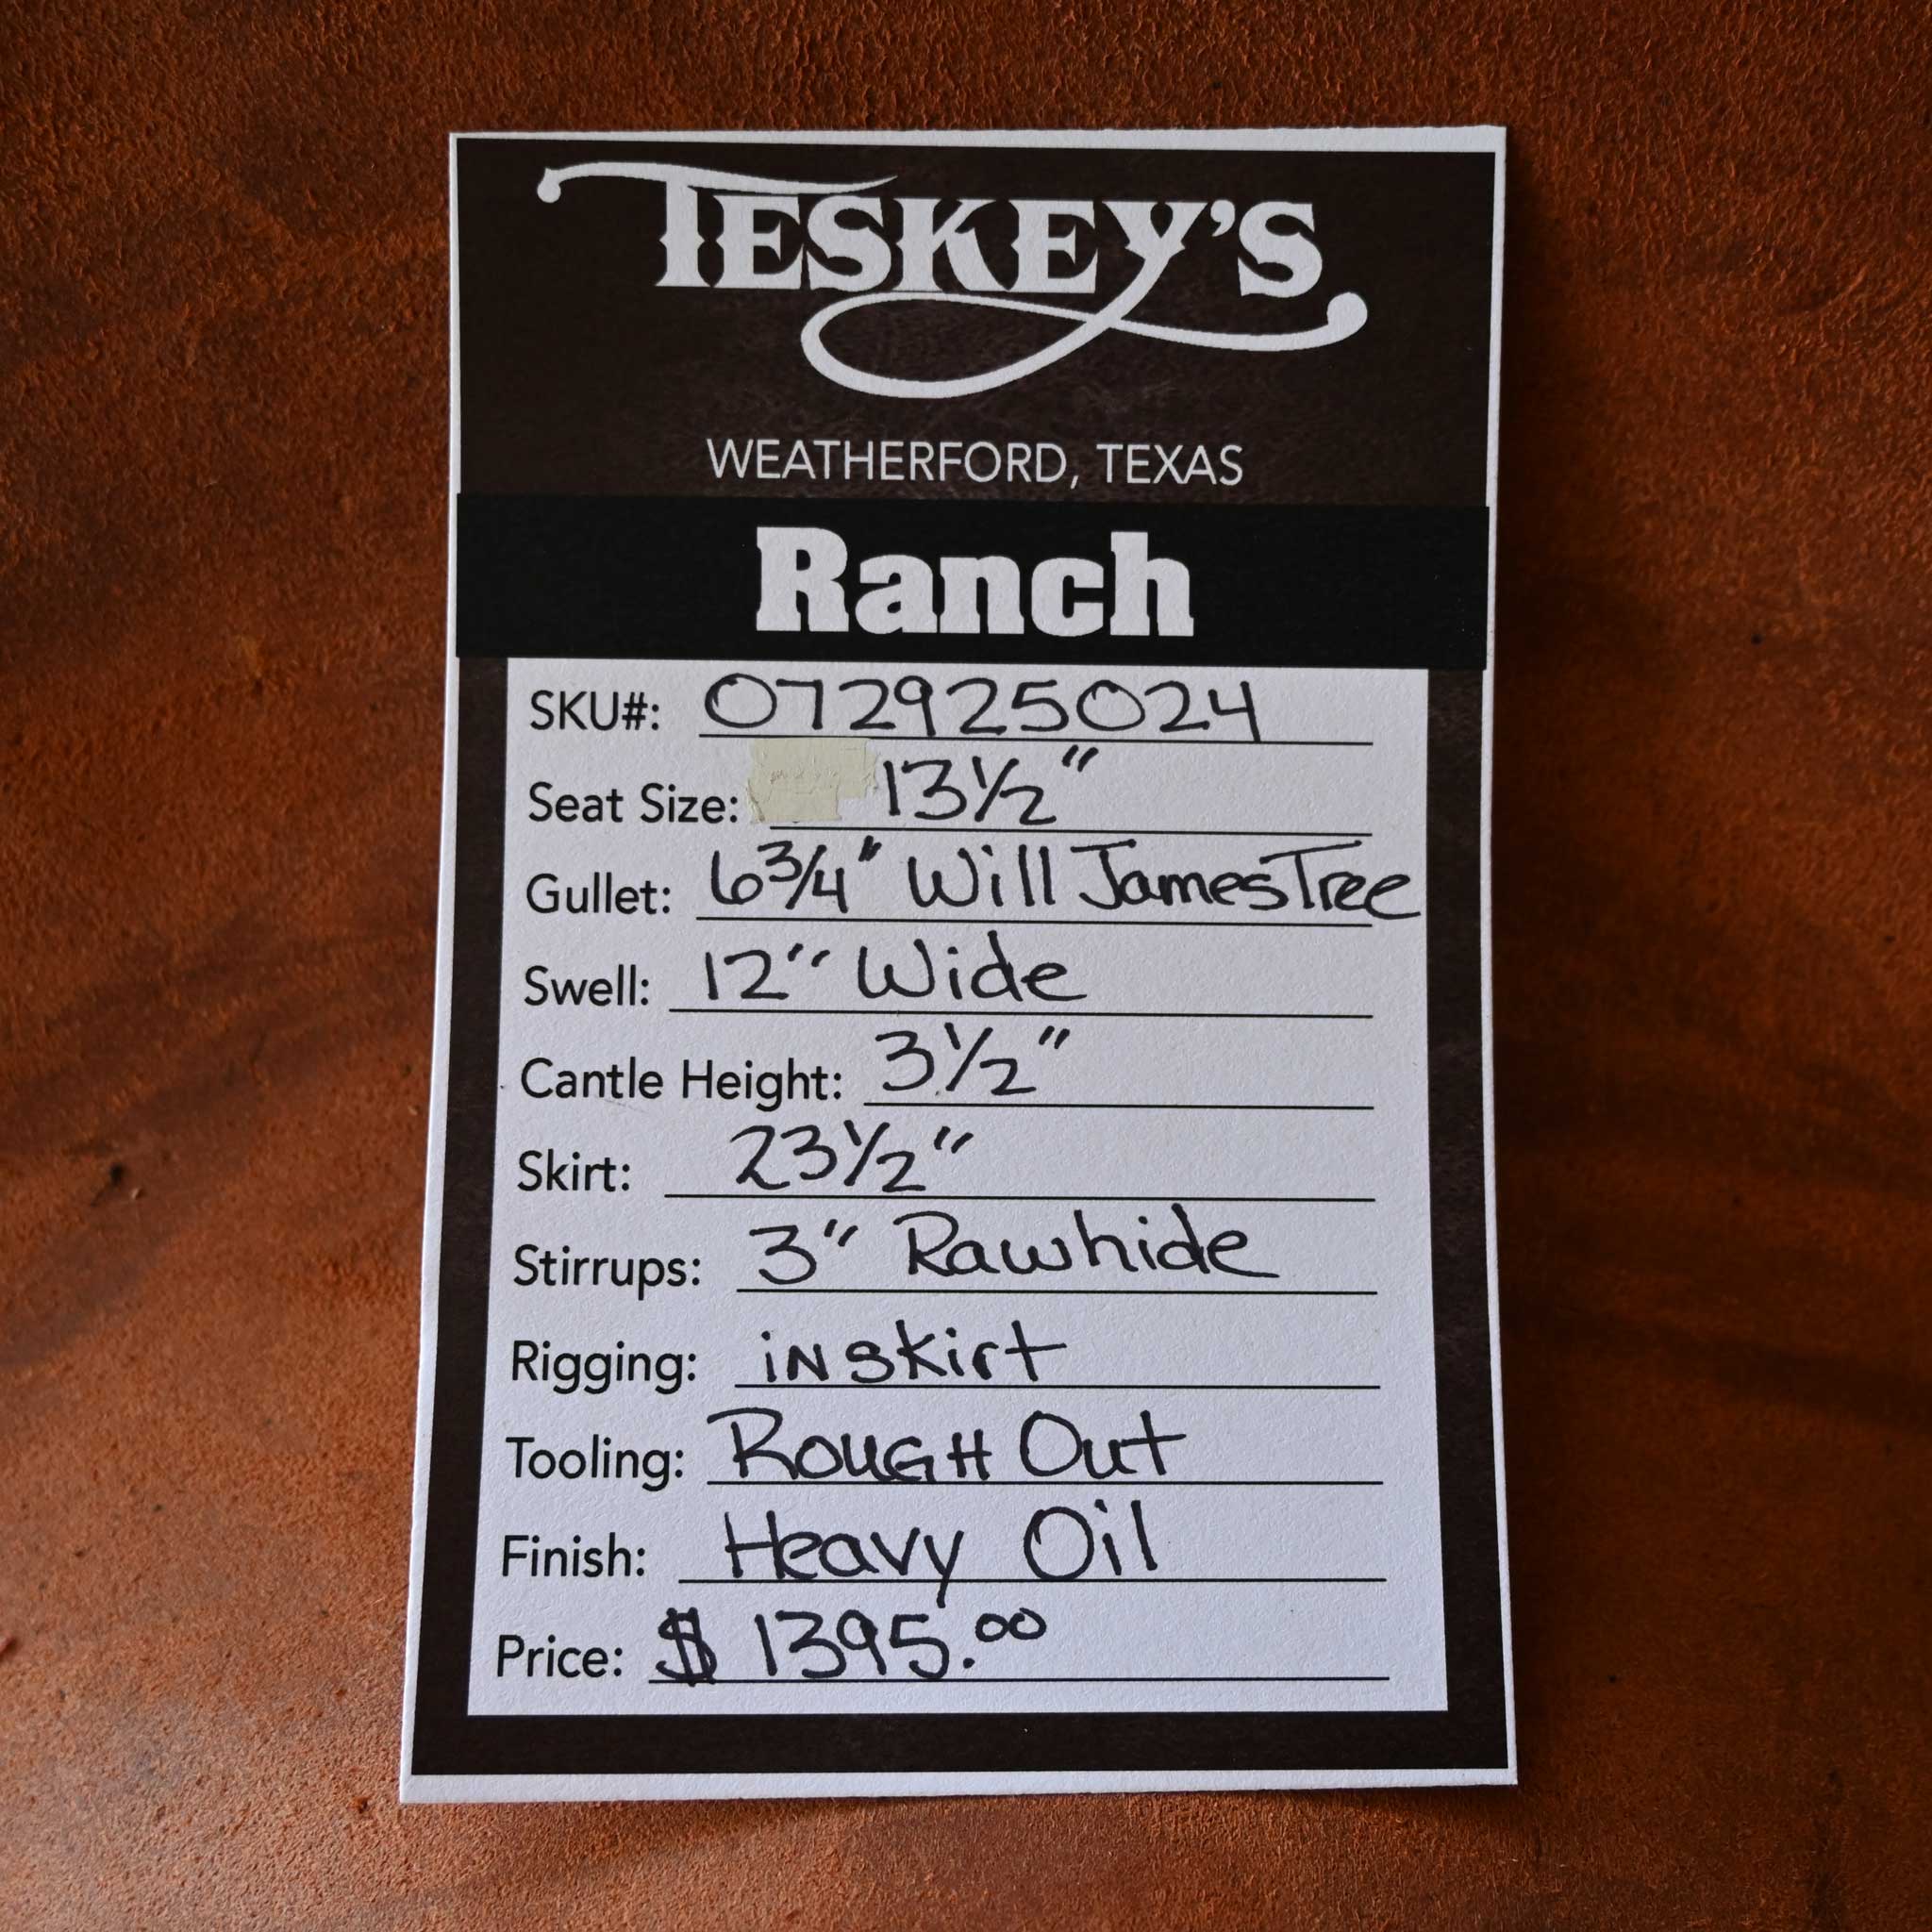 TESKEY'S
WEATHERFORD, TEXAS
Ranch
SKU#: 072925024
Seat Size: 13½"
Gullet: 6¾" Will James Tree
Swell: 12" Wide
Cantle Height: 3½"
Skirt: 23½"
Stirrups: 3" Rawhide
Rigging: iN skirt
Tooling: ROUGH Out
Finish: Heavy Oil
Price: $ 1395.00